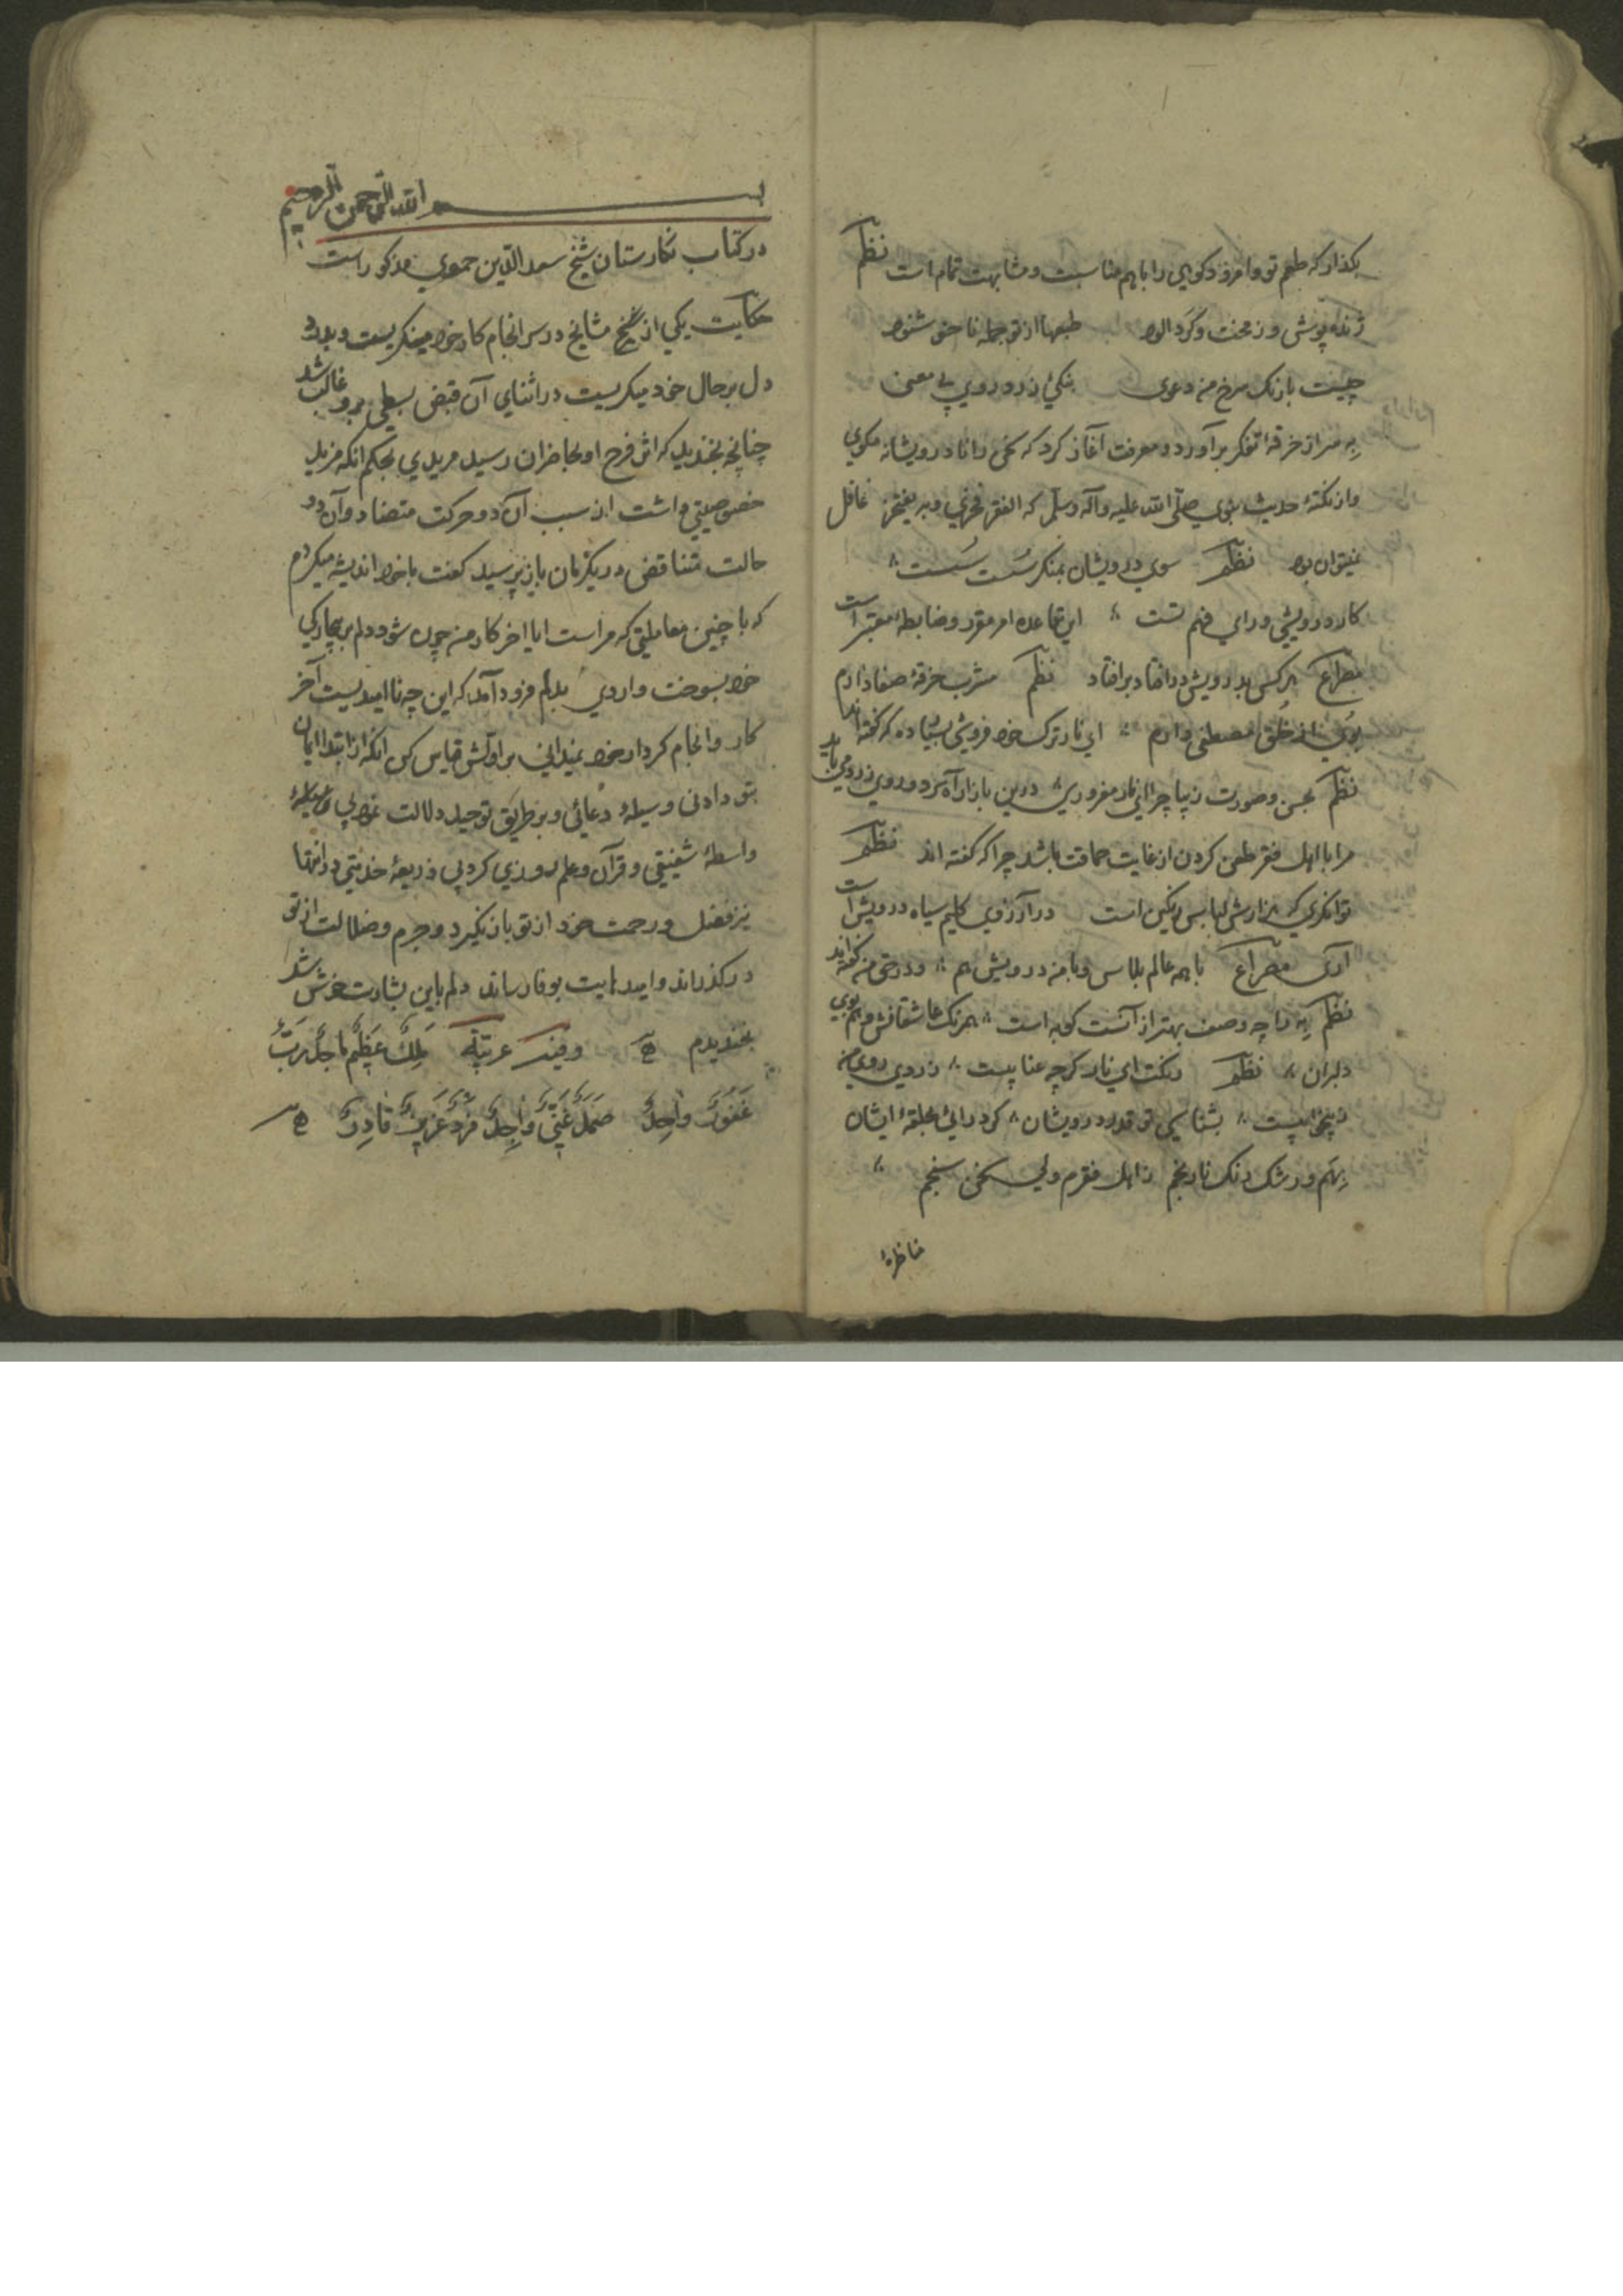 بکذار که طعم تو و امرود کوهی را با هم مناسبت و مشابهت تمام است نظم
ژنده پوش و ز محنت و گرد الود طبعها از تو جمله ناخوشنود
چیست بازنک سرخ منه دعوی بنکی زرد روی بی معنی
به سر از خرقه تفکر برآورد و معرفت آغاز کرد که سخن دانا درویشانه مکوی
و از نکتهٔ حدیث نبوی صلّی الله علیه وآله وسلّم که الفقر فخری وبه یفتخر غافل
نمیتوان بود نظم سوی درویشان بمنکر سُست سَست
کار درویشی ورای فهم تست این قاعده امر مقرر و ضابطهٔ معتبر است
مصراع هر کس بدرویش درافتاد برافتاد نظم مشرب خرقهٔ صفا دارم
بوی از خُلق مصطفی دارم ای نار ترک خود فروشی بسیار ده که گفته اند
نظم بحسن و صورت زیبا چرا ای نار مغروری درین بازار آه سرد و روی زرد می باید
مرا با اهل فقر طعن کردن از غایت حماقت باشد چرا که گفته اند نظم
توانکری که هزارش لباس رنکین است در آرزوی کلیم سیاه درویش است
آری مصراع با همه عالم پلاس و با منه درویش هم و در حق منه گفته اند
نظم به را چه وصف بهتر از آنست کوبه است همرنک عاشقانش و هم بوی
دلبران نظم نکفت ای نار کرچه عنا پیست زردی روی من
ز پیست بشناسی تو قدر درویشان کر درائی بحلقهٔ ایشان
بهم و رشک رنک نارنجم ز اهل فقرم ولی سخن سنجم
مناظرهٔ
بسم الله الرّحمن الرّحیم
در کتاب نکارستان شیخ سعد الدّین حموی مذکور است
حکایت یکی از شیخ مشایخ در سرانجام کار خود مینکریست و بدرد
دل بر حال خود میکریست در اثنای آن قبض بسطی برو غالب شد
چنانچه بخندید که اثر فرح او بحاضران رسید مریدی بحکم انکه مزید
خصوصیتی داشت از سبب آن دو حرکت متضاد و آن دو
حالت متناقض در یکزمان باز پرسید گفت با خود اندیشه میکردم
که با چنین معاملتی که مراست ایا اخر کار من چون شود دلم بر بیچارکی
خود بسوخت واردی بدلم فرود آمد که این چه ناامیدیست آخر
کار و انجام کردار خود نمیدانی بر اوّلش قیاس کن انکه از ابتدا ایمان
بتو داد بی وسیلهٔ دعائی و بر طریق توحید دلالت نمود بی
واسطهٔ شفیعی و قرآن و علم روزی کرد بی ذریعهٔ خدمتی در انتها
نیز فضل و رحمت خود از تو باز نکیرد و جرم و ضلالت از تو
درکذراند و امید نهایت بوفا رساند دلم باین بشارت خوش شد
بخندیدم وقیت عربیّة مَلِكٌ عَظیمٌ ماجدٌ رَبٌّ
غَفورٌ واحِدٌ صَمَدٌ غَنِیٌّ واجِدٌ فردٌ عَزیزٌ قادِرٌ